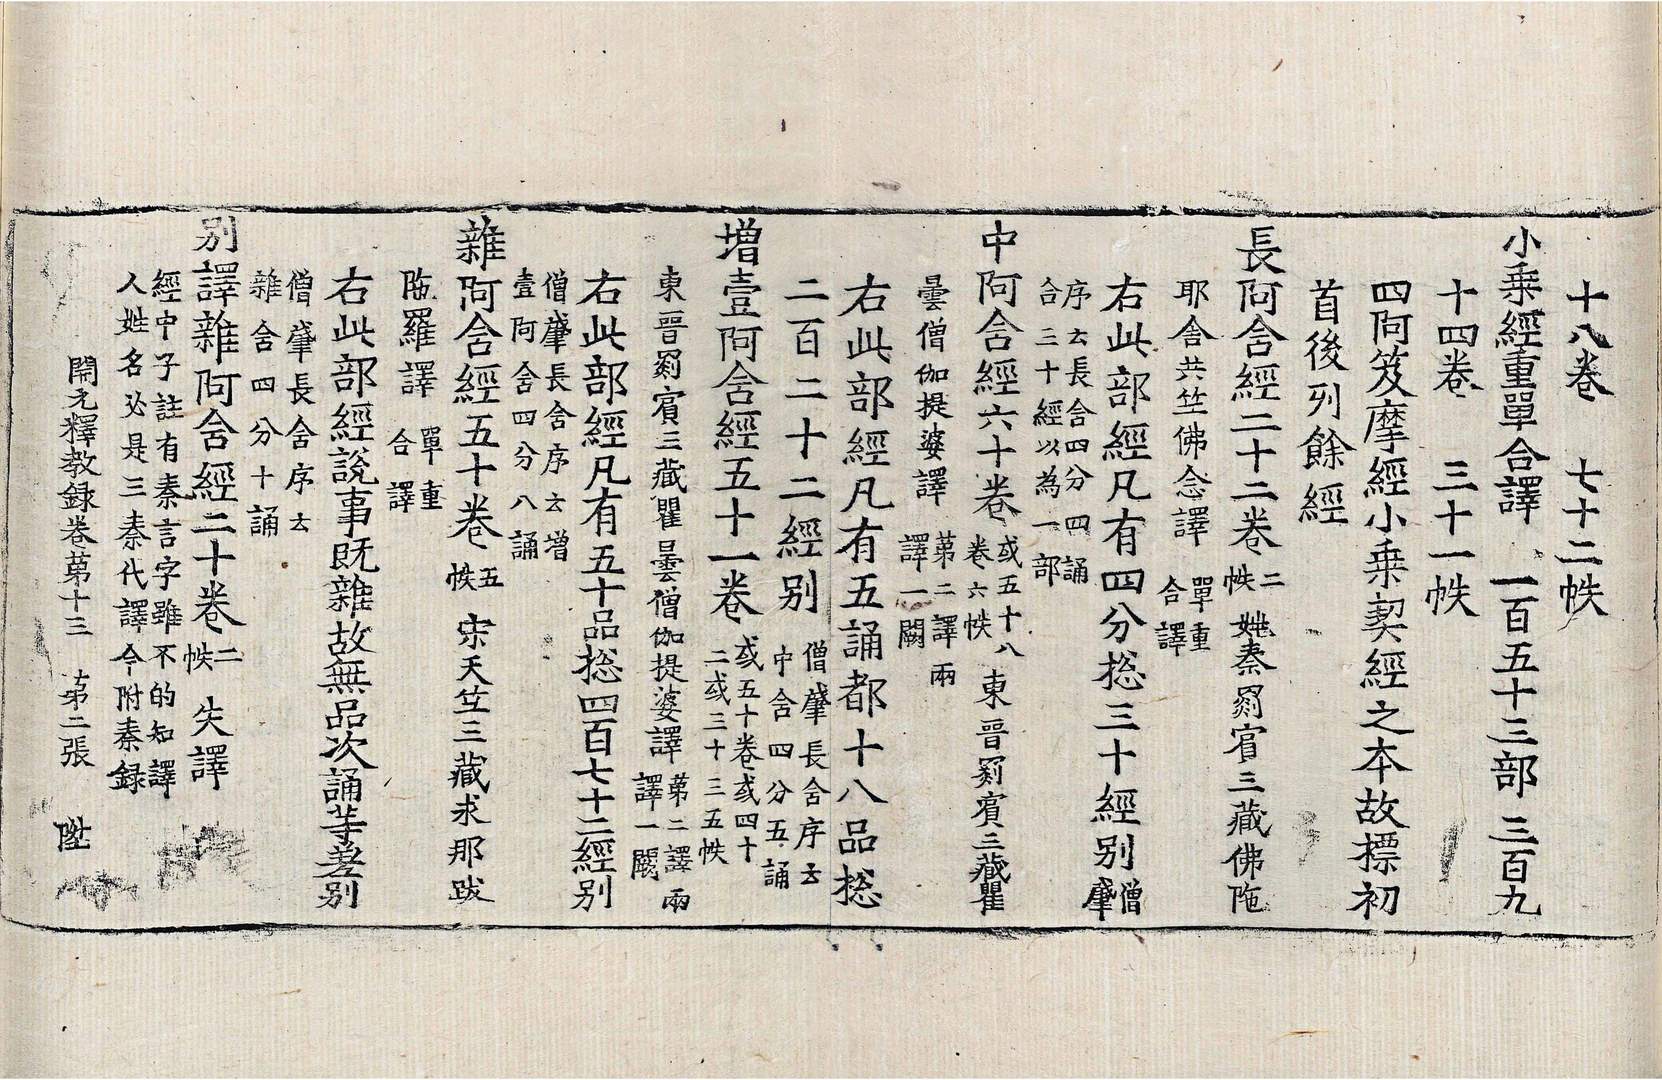 十八卷 七十二帙
小乘經重單合譯 一百五十三部 三百九
十四卷 三十一帙
四阿笈摩經小乘契經之本故摽初
首後列餘經
長阿含經二十二卷 二
帙 姚秦罽賓三藏佛陁
耶舍共竺佛念譯 單重
合譯
右此部經凡有四分揔三十經別 僧
肇
序云長含四分四誦
合三十經以為一部
中阿含經六十卷 或五十八
卷六帙 東晉罽賓三藏瞿
曇僧伽提婆譯 苐二譯兩
譯一闕
右此部經凡有五誦都十八品揔
二百二十二經別 僧肇長含序云
中含四分五誦
增壹阿含經五十一卷 或五十卷或四十
二或三十三五帙
東晉罽賓三藏瞿曇僧伽提婆譯 苐二譯兩
譯一闕
右此部經凡有五十品揔四百七十二經別
僧肇長含序云增
壹阿含四分八誦
雜阿含經五十卷 五
帙 宋天竺三藏求那跋
陁羅譯 單重
合譯
右此部經說事既雜故無品次誦等差別
僧肇長含序云
雜含四分十誦
別譯雜阿含經二十卷 二
帙 失譯
經中子註有秦言字雖不的知譯
人姓名必是三秦代譯今附秦録
開元釋教録卷苐十三 苐二張 陞